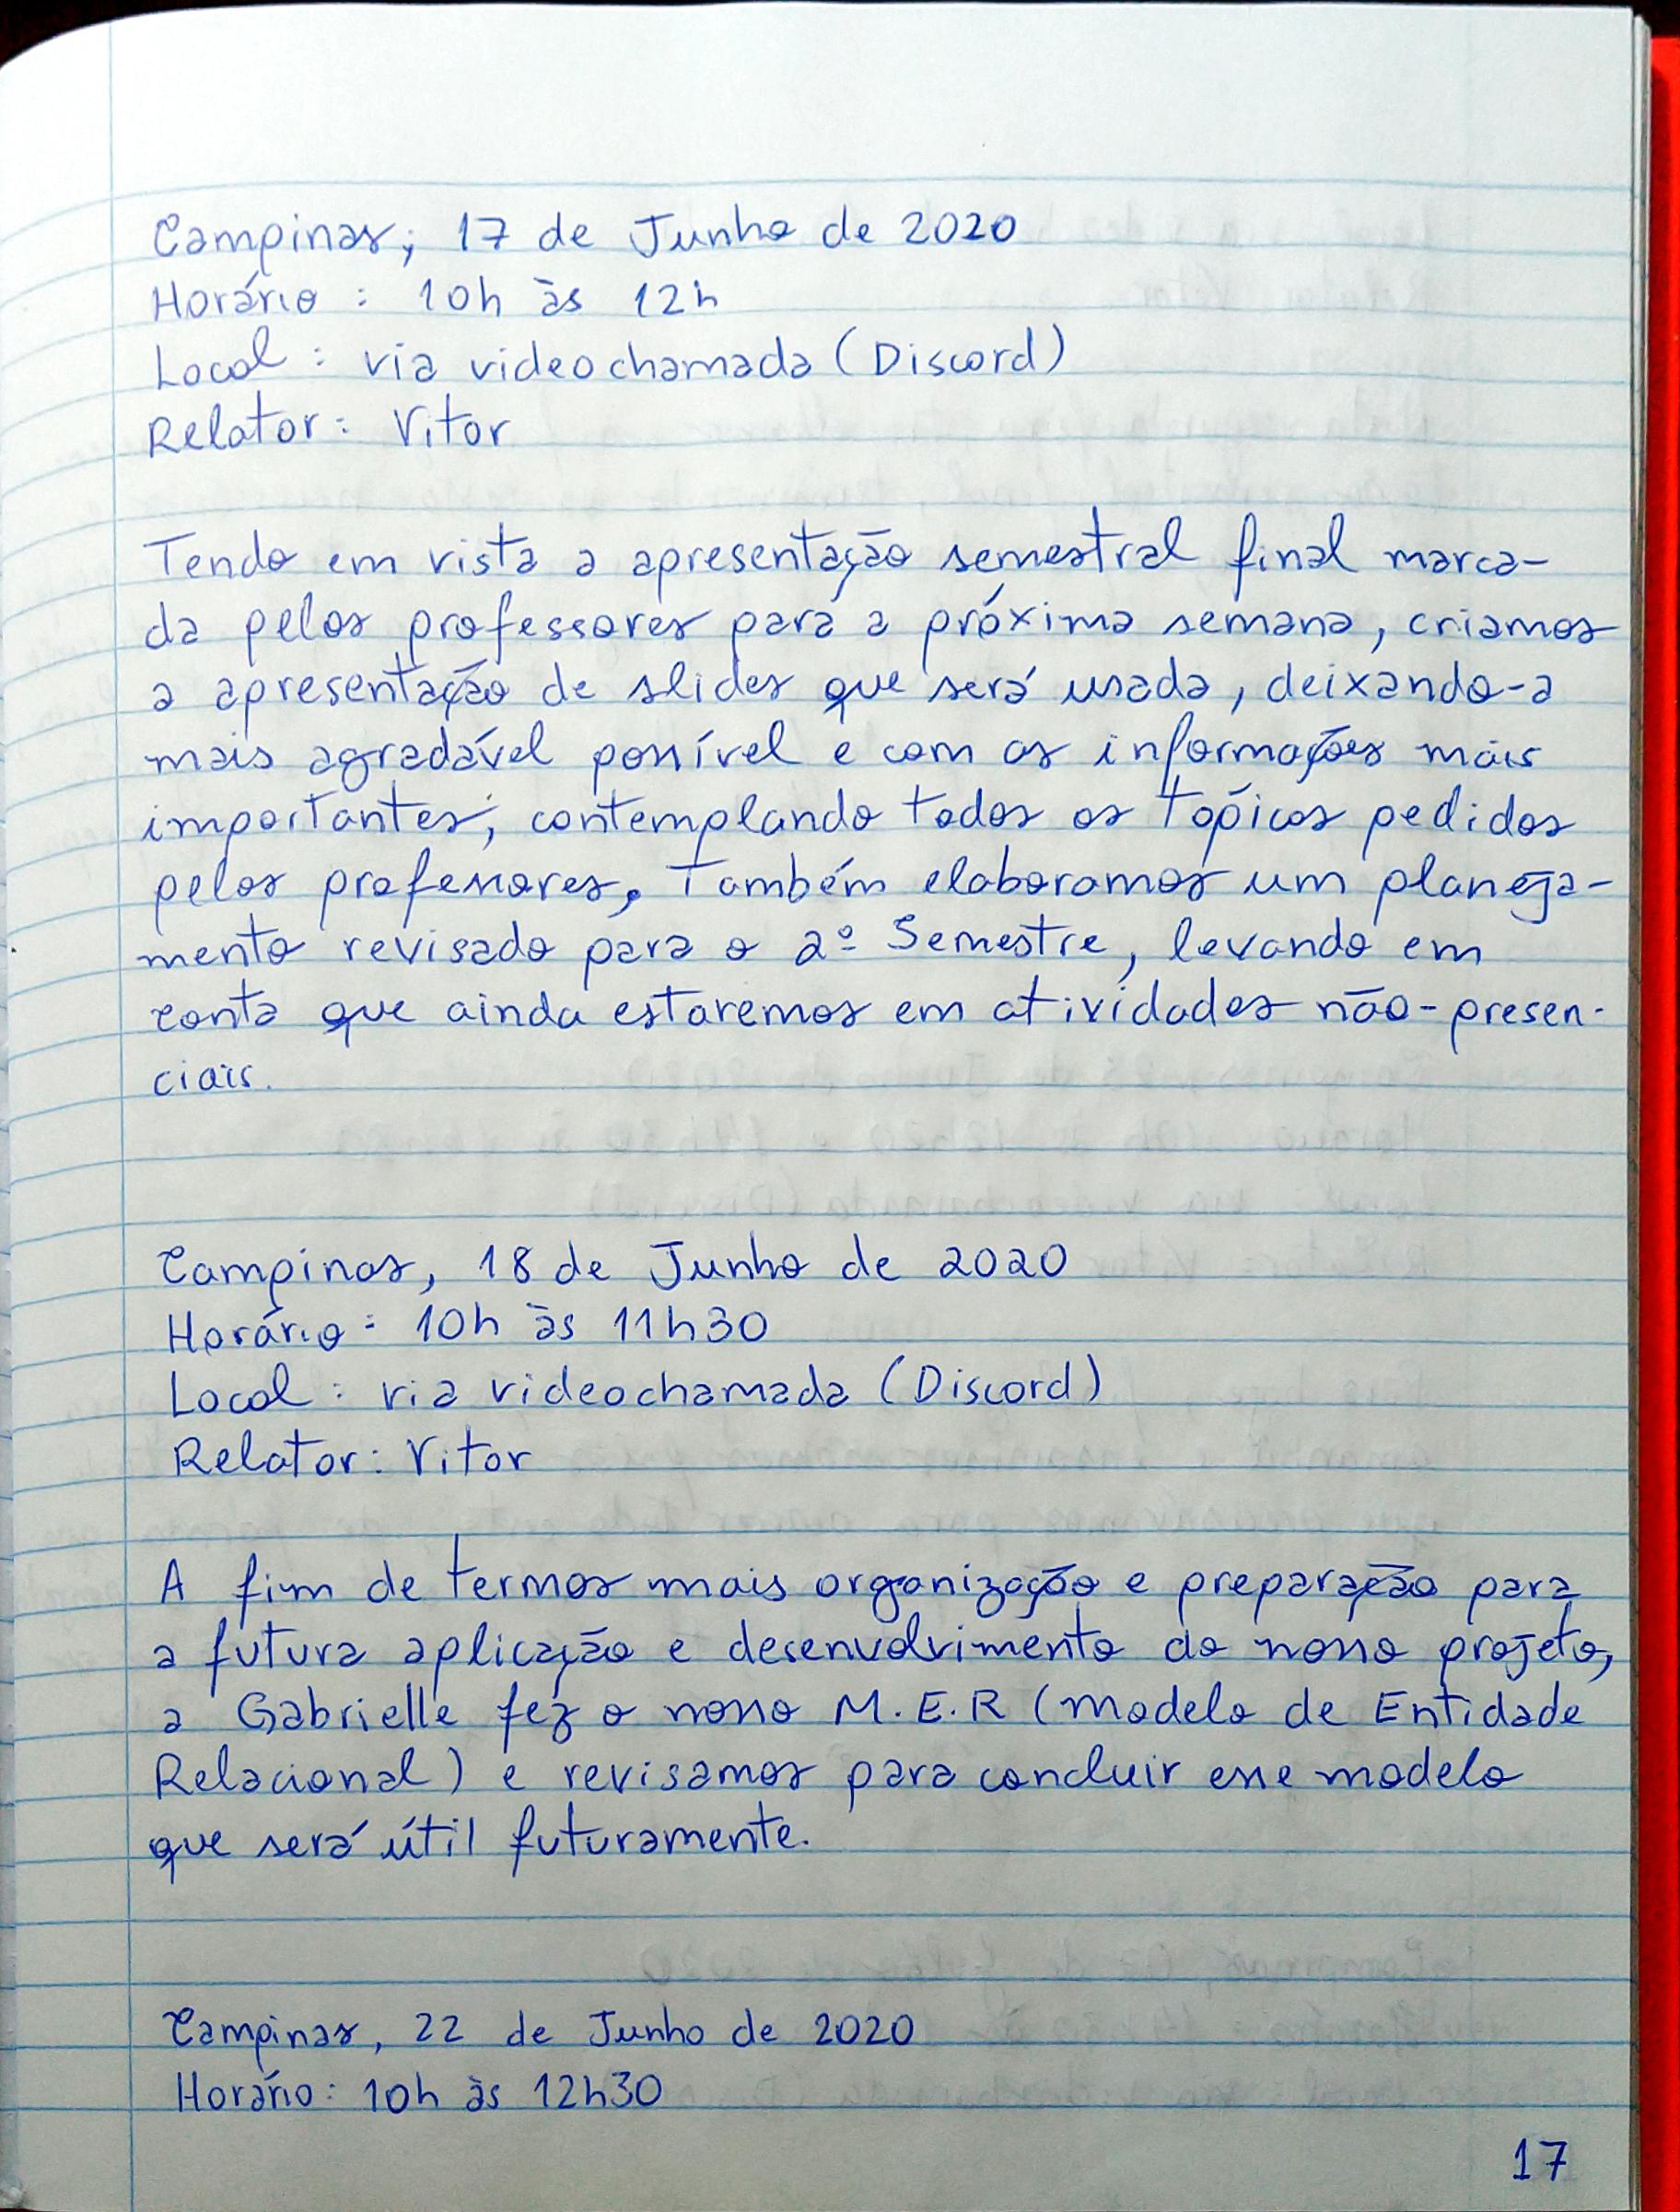 Campinas, 17 de Junho de 2020
Horário: 10h às 12h
Local: via videochamada (Discord)
Relator: Vitor
Tendo em vista a apresentação semestral final marca-
da pelos professores para a próxima semana, criamos
a apresentação de slides que será usada, deixando-a
mais agradável possível e com as informações mais
importantes, contemplando todos os tópicos pedidos
pelos professores. Também elaboramos um planeja-
mento revisado para o 2º Semestre, levando em
conta que ainda estaremos em atividades não-presen-
ciais.
Campinas, 18 de Junho de 2020
Horário: 10h às 11h30
Local: via videochamada (Discord)
Relator: Vitor
A fim de termos mais organização e preparação para
a futura aplicação e desenvolvimento do nosso projeto,
a Gabrielle fez o nosso M.E.R (Modelo de Entidade
Relacional) e revisamos para concluir esse modelo
que será útil futuramente.
Campinas, 22 de Junho de 2020
Horário: 10h às 12h30
17